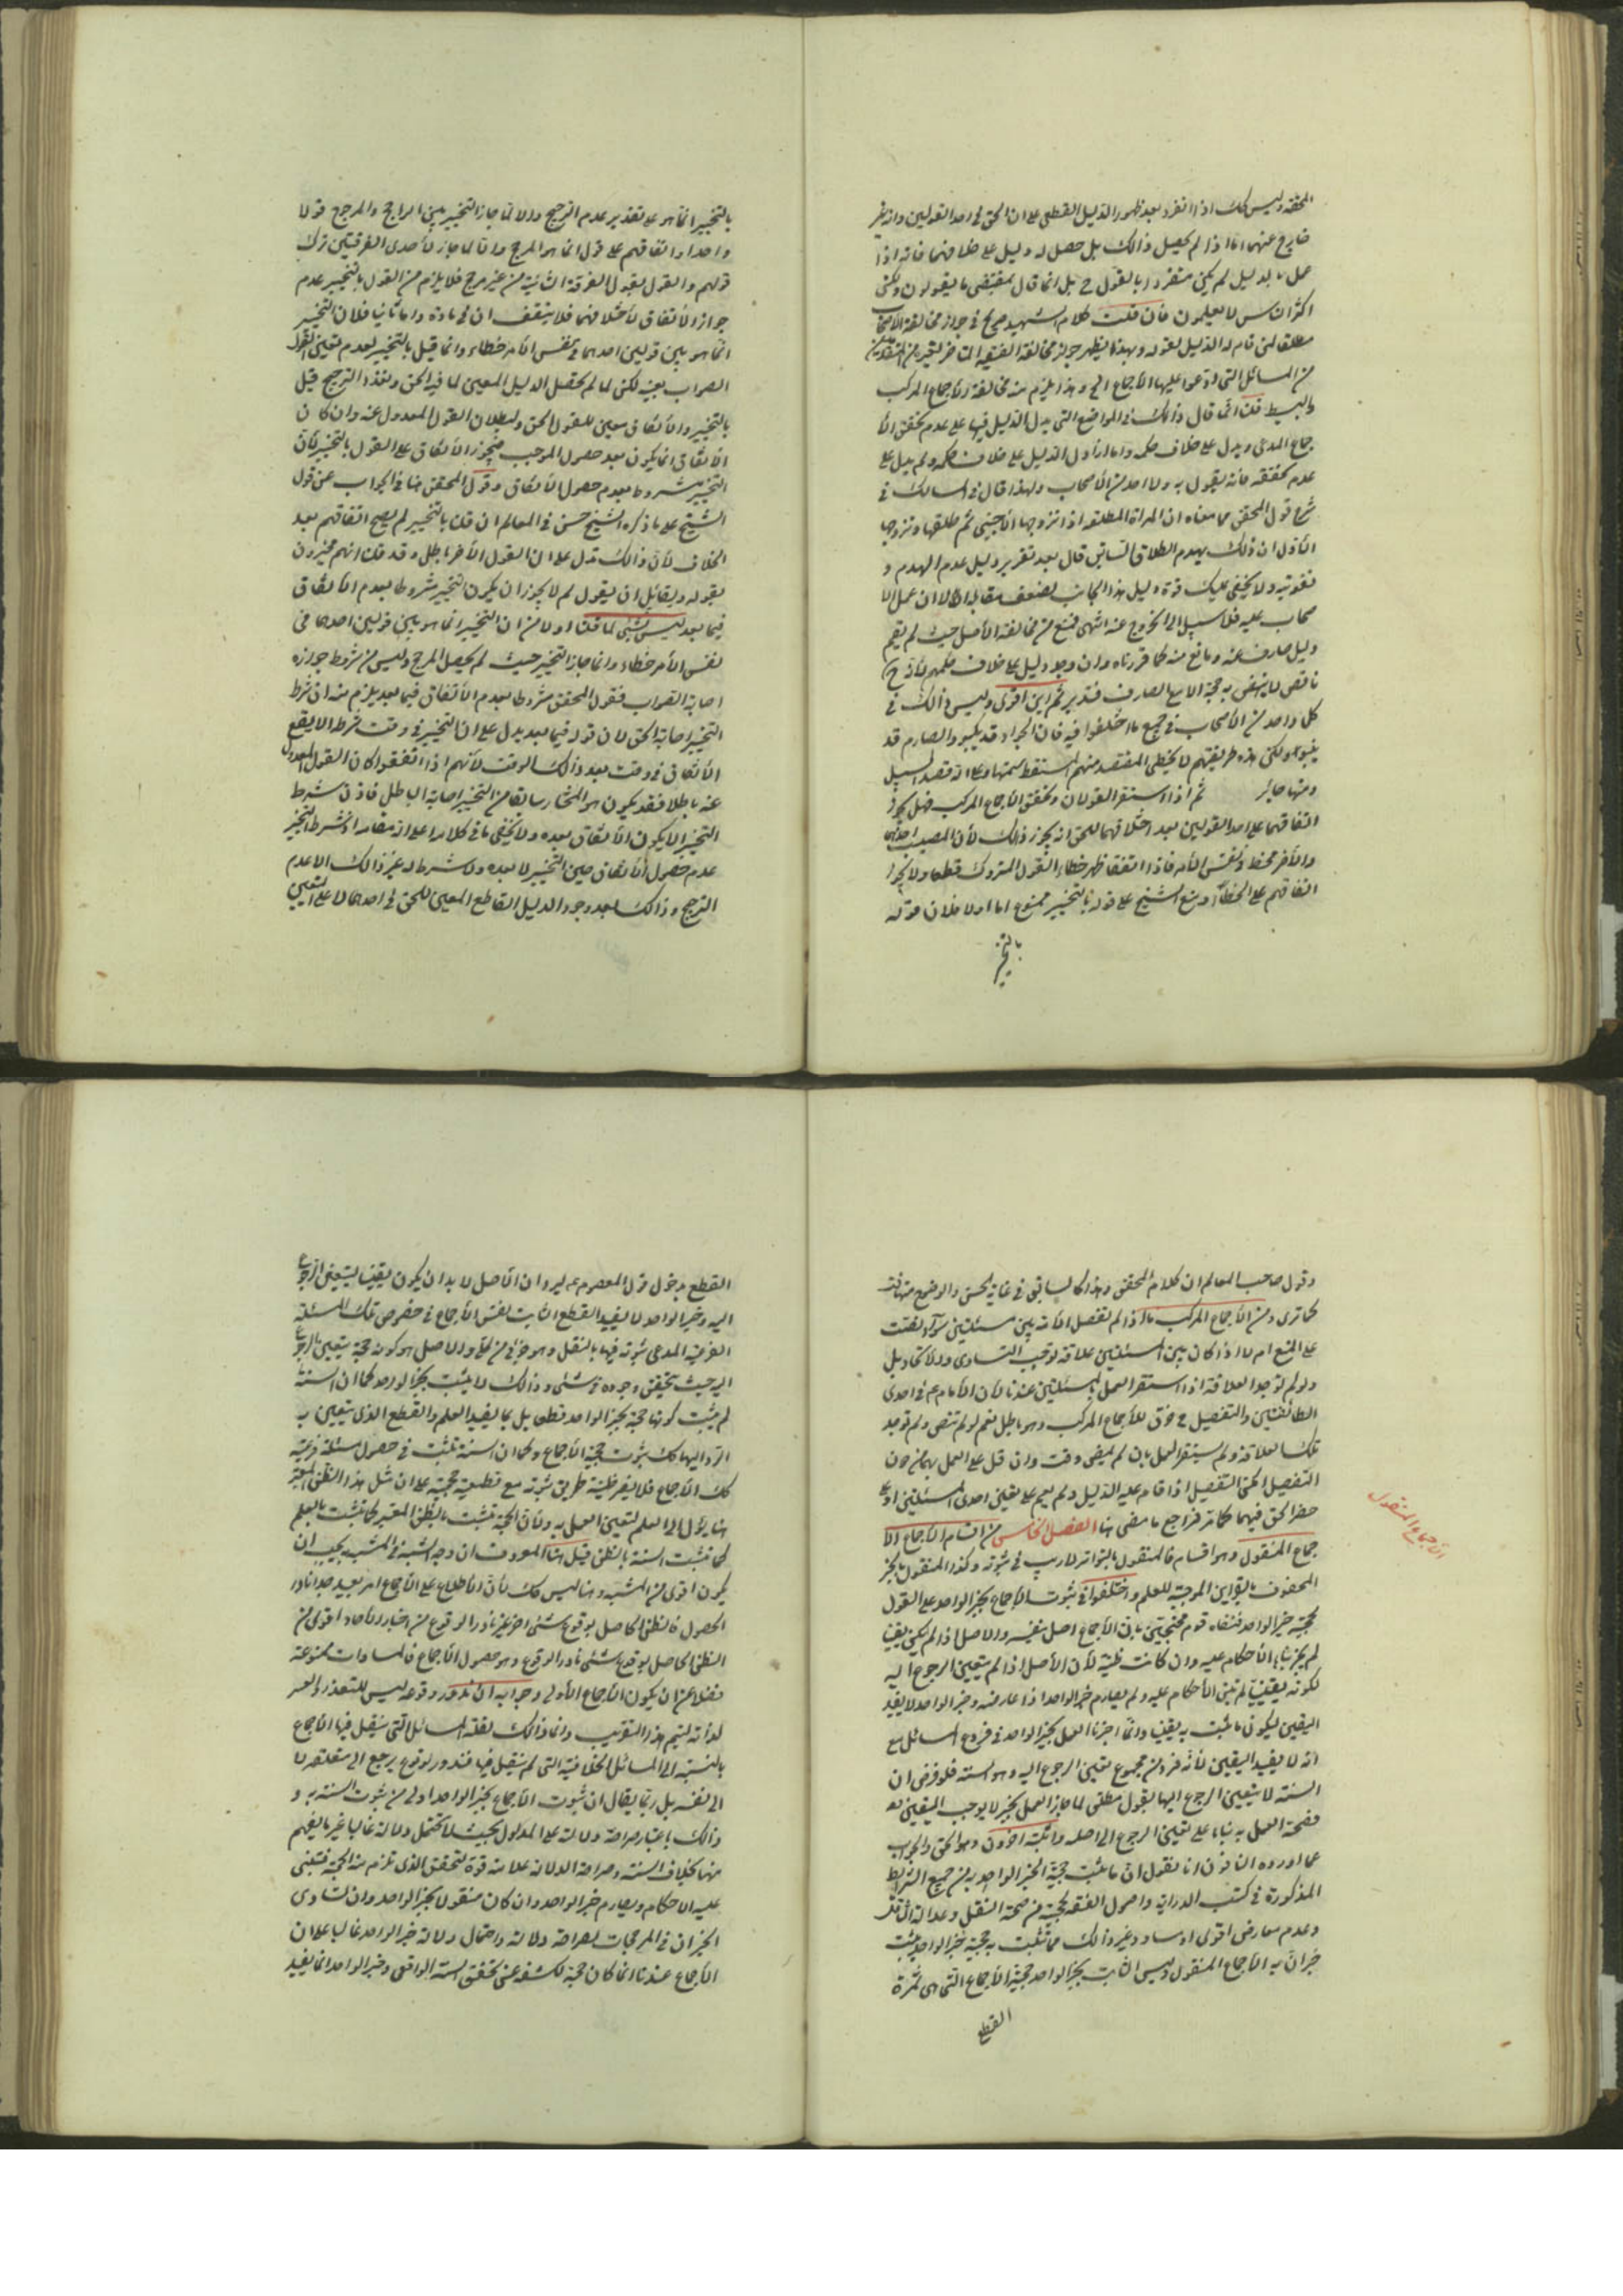 المحقق وليس كك اذا انفرد بعد ظهور الدليل القطعى على ان الحق فى احد القولين وانه غير
خارج عنهما اما اذا لم يحصل ذالك بل حصل له دليل على خلافهما فانه اذا
عمل بالدليل لم يكن منفردا بالقول ح بل انما قال بمقتضى ما يقولون ولكن
اكثر الناس لا يعلمون فان قلت كلام الشهيد صريح فى جواز مخالفة الاصحاب
مطلقا لمن قام له الدليل لقوله وبهذا يظهر جواز مخالفة الفقيه المتأخر لغيره من المتقدمين
من المسائل التى ادعوا عليها الأجماع الخ وهذا يلزم منه مخالفة الأجماع المركب
والبسيط قلت انما قال ذالك فى المواضع التى يدل الدليل فيها على عدم تحقق الأ
جماع المدعى ويدل على خلاف حكمه واما اذا دل الدليل على خلاف حكمه ولم يدل على
عدم تحققه فانه يقول به ولا احد من الأصحاب ولهذا قال فى المسالك فى
شرح قول المحقق ما معناه ان المرأة المطلقه اذا تزوجها الأجنبى ثم طلقها وتزوجها
الأول ان ذلك يهدم الطلاق السابق قال بعد تقرير دليل عدم الهدم و
تقويته ولا يخفى عليك قوة دليل هذا الجانب لضعف مقابله الا ان عمل الا
صحاب عليه فلا سبيل الى الخروج عنه انتهى فمنع من مخالفة الأصل حيث لم يقم
دليل صارف عنه ومانع منه كما قررناه وان وجد دليل على خلاف حكمهم لأنه ح
ناقص لا ينهض به حجة الا مع الصارف فتدبر ثم اين اقوى وليس ذالك فى
كل واحد من الأصحاب فى جميع ما اختلفوا فيه فان الجواد قد يكبو والصارم قد
ينبو ولكن هذه طريقتهم لا يخطى المقتصد منهم المستقط سمتها وعلى الله قصد السبيل
ومنها جائر ثم اذا استقر القولان وتحقق الأجماع المركب فهل يجوز
اتفاقهما على احد القولين بعد اختلافهما الحق انه يجوز ذلك لأن المصيب احدهما
والأخر مخط فى نفس الأمر فاذا اتفقا ظهر خطاء القول المتروك قطعا ولا يجوز
اتفاقهم على الخطأ ومنع الشيخ على قوله بالتخيير ممنوع اما اولا فلان قوله
بالتخيير
بالتخيير انما هو على تقدير عدم الترجيح والا لما جاز التخيير بين الراجح والمرجوح قولا
واحدا واتفاقهم على قول انما هو المرجح والا لما جاز لأحدى الفرقتين ترك
قولهم والقول بقول الفرقة الثانية من غير مرجح فلا يلزم من القول بالتخيير عدم
جواز الأتفاق لأختلافهما فلا يتقف ان فى مادة واما ثانيا فلان التخيير
انما هو بين قولين احدهما فى نفس الأمر خطاء وانما قيل بالتخيير لعدم تعين القول
الصواب بعينه لكن لما لم يحصل الدليل المعين لما فيه الحق وتعذر الترجيح قيل
بالتخيير والأتفاق معين للقول الحق ولبطلان القول المعدول عنه وان كان
الأتفاق انما يكون بعد حصول الموجب فيجوز الأتفاق على القول بالتخيير لأن
التخيير مشروط بعدم حصول الأتفاق وقول المحقق هنا فى الجواب عن قول
الشيخ على ما ذكره الشيخ حسن فى المعالم ان قلنا بالتخيير لم يصح اتفاقهم بعد
الخلاف لأن ذالك يدل على ان القول الأخر باطل وقد قلنا انهم مخيرون
بقوله ولقائل ان يقول لم لا يجوز ان يكون التخيير مشروطا بعدم الأتفاق
فيما بعد ليس بشئ لما قلنا اولا من ان التخيير انما هو بين قولين احدهما فى
نفس الأمر خطاء وانما جاز التخيير حيث لم يحصل المرجح وليس من شروط جوازه
اصابة الصواب فقول المحقق مشروطا بعدم الأتفاق فيما بعد يلزم منه ان شرط
التخيير اصابة الحق لان قوله فيما بعد يدل على ان التخيير فى وقت شرطه الا يقع
الأتفاق فى وقت بعد ذالك الوقت لأنهم اذا اتفقوا كان القول المعدول
عنه باطلا فقد يكون هو المختار سابقا من التخيير اصابة الباطل فاذن شرط
التخيير الا يكون الأتفاق بعده ولا يخفى ما فى كلامه اعلى الله مقامه اذ شرط التخيير
عدم حصول الأتفاق حين التخيير لا بعده ولا شرط له غير ذالك الا عدم
الترجيح وذالك بعد وجود الدليل القاطع المعين للحق فى احدهما لا على التعيين
وقول صاحب المعالم ان كلام المحقق وهذا كالسابق فى غاية الحسن والوضوح متهافت
كما ترى ومن الأجماع المركب ما اذا لم تفصل الأمة بين مسئلتين سواء نصت
على المنع ام لا اذا كان بين المسئلتين علاقة توجب التساوى والأتحاد بل
ولو لم توجد العلاقة اذا استقر العمل بالمسئلتين عندنا لأن الأمام ع فى احدى
الطائفتين والتفصيل ح خرق للأجماع المركب وهو باطل نعم لو لم تنص ولم توجد
تلك العلاقة ولم يستقر العمل بان لم يمض وقت وان قل على العمل بهما من دون
التفصيل امكن التفصيل اذا قام عليه الدليل ولم يقم على تعيين احدى المسئلتين او على
حصر الحق فيهما كما مر فراجع ما مضى هنا الفصل الخامس من اقسام الأجماع الأ
جماع المنقول وهو اقسام فالمنقول بالتواتر لا ريب فى ثبوته وكذا المنقول بالخبر
المحفوف بالقراين الموجبة للعلم واختلفوا فى ثبوت الأجماع بخبر الواحد على القول
بحجية خبر الواحد فنفاه قوم محتجين بان الأجماع اصل بنفسه والاصل اذا لم يكن يقينيا
لم يجز بناء الأحكام عليه وان كانت ظنية لأن الأصل اذا لم يتعين الرجوع اليه
لكونه يقينيا لم تبن الأحكام عليه ولم يعارم خبر الواحد اذا عارضه وخبر الواحد لا يفيد
اليقين ليكون ما ثبت به يقينيا وانما اجزنا العمل بخبر الواحد فى فروع المسائل مع
انه لا يفيد اليقين لأنه فرد من مجموع تعين الرجوع اليه وهو السنة فلو فرض ان
السنة لا يتعين الرجوع اليها بقول مطلق لما جاز العمل بخبر لا يوجب اليقين
فصحة العمل به بناء على تعين الرجوع الى اصله واثبته اخرون وهو الحق والجواب
عما اورده النافون انا نقول ان ما يثبت حجية الخبر الواحد به من جميع الشرايط
المذكورة فى كتب الدراية واصول الفقه لحجيته من صحة النقل وعدالة الناقل
وعدم معارض اقوى او مساو وغير ذالك مما تثبت به حجية خبر الواحد يثبت
خبرا به الأجماع المنقول وليس الثابت بخبر الواحد حجية الأجماع التى هى ثمرة
القطع
الأجماع المنقول
القطع بدخول قول المعصوم عليه السلام وان الأصل لا بد ان يكون يقينيا ليتعين الرجوع
اليه وخبر الواحد لا يفيد القطع الثابت نفس الأجماع فى خصوص تلك المسئلة
الفرعية المدعى ثبوته فيها بالنقل وهو جزئى من كلى والاصل هو كونه حجة يتعين الرجوع
اليه حيث يتحقق وجوده فى شئ وذالك لا يثبت بخبر الواحد كما ان السنة
لم يثبت كونها حجة بخبر الواحد قطعا بل بما يفيد العلم والقطع الذى يتعين به
الرد اليها كك ثبوت حجية الأجماع وكما ان السنة تثبت فى حصول مسئلة فرعية
كك الأجماع فلا يضر ظنية طريق ثبوته مع قطعية حجيته على ان مثل هذا الظن المعتبر
هنا يؤل الى العلم لتعين العمل به ولأن الحجة تثبت بالظن المعتبر كما تثبت بالعلم
كما تثبت السنة بالظن قيل هنا المعروف ان وجه الشبه فى المشبه به يجب ان
يكون اقوى من المشبه وهنا ليس كك لأن الأطلاع على الأجماع امر بعيد جدا نادر
الحصول فالظن الحاصل بوقوع شئ اخر غير نادر الوقوع من اخبار الأحاد اقوى من
الظن الحاصل بوقوع شئ نادر الوقوع وهو حصول الأجماع فالمساوات ممنوعة
فضلا عن ان يكون الأجماع الأولى وجوابه ان ندور وقوعه ليس للتعذر والعسر
لذاته ليتم هذا التقريب وانما ذالك لقلة المسائل التى ينقل فيها الأجماع
بالنسبة الى المسائل الخلافية التى لم ينقل فيها فندور الوقوع يرجع الى متعلقه لا
الى نفسه بل ربما يقال ان ثبوت الأجماع بخبر الواحد اولى من ثبوت السنة به و
ذالك باعتبار صراحة دلالته على المدلول بحيث لا تحتمل دلالة غالبا غير ما يفهم
منها بخلاف السنة وصراحة الدلالة علامة قوة التحقق الذى تلزم منه الحجية فتبنى
عليه الاحكام ويعارم خبر الواحد وان كان منقولا بخبر الواحد وان تساوى
الخبران فى المرجحات لصراحة دلالته واحتمال دلالة خبر الواحد غالبا على ان
الأجماع عندنا انما كان حجة لكشفه عن تحقق السنة الواقعى وخبر الواحد انما يفيد